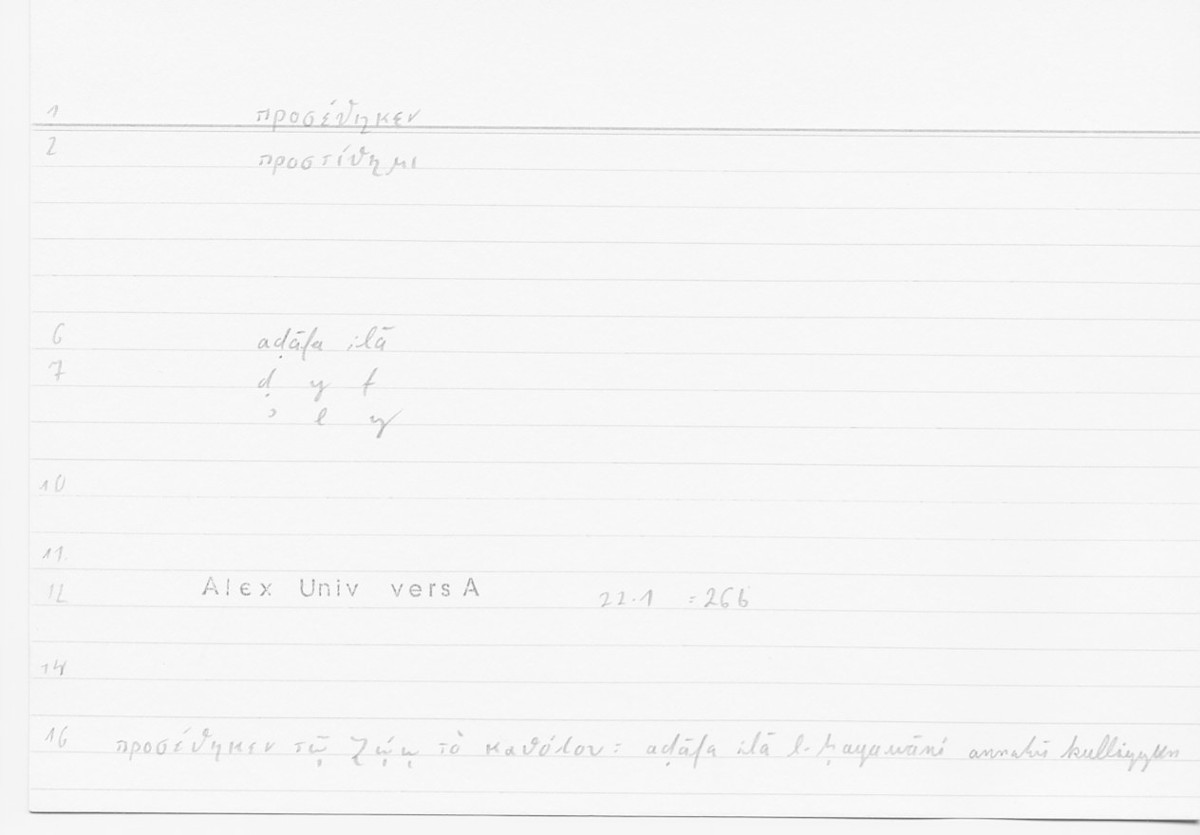 1 προσέθηκεν
2 προστίθημι
6 aḍāfa ilā
7 ḍ y f
ʾ l y
10
11
12 Alex Univ vers A 22.1 = 26b
14
16 προσέθηκεν τῷ ζῴῳ τὸ καθόλου: aḍāfa ilā l-ḥayawāni annahū kulliyyun